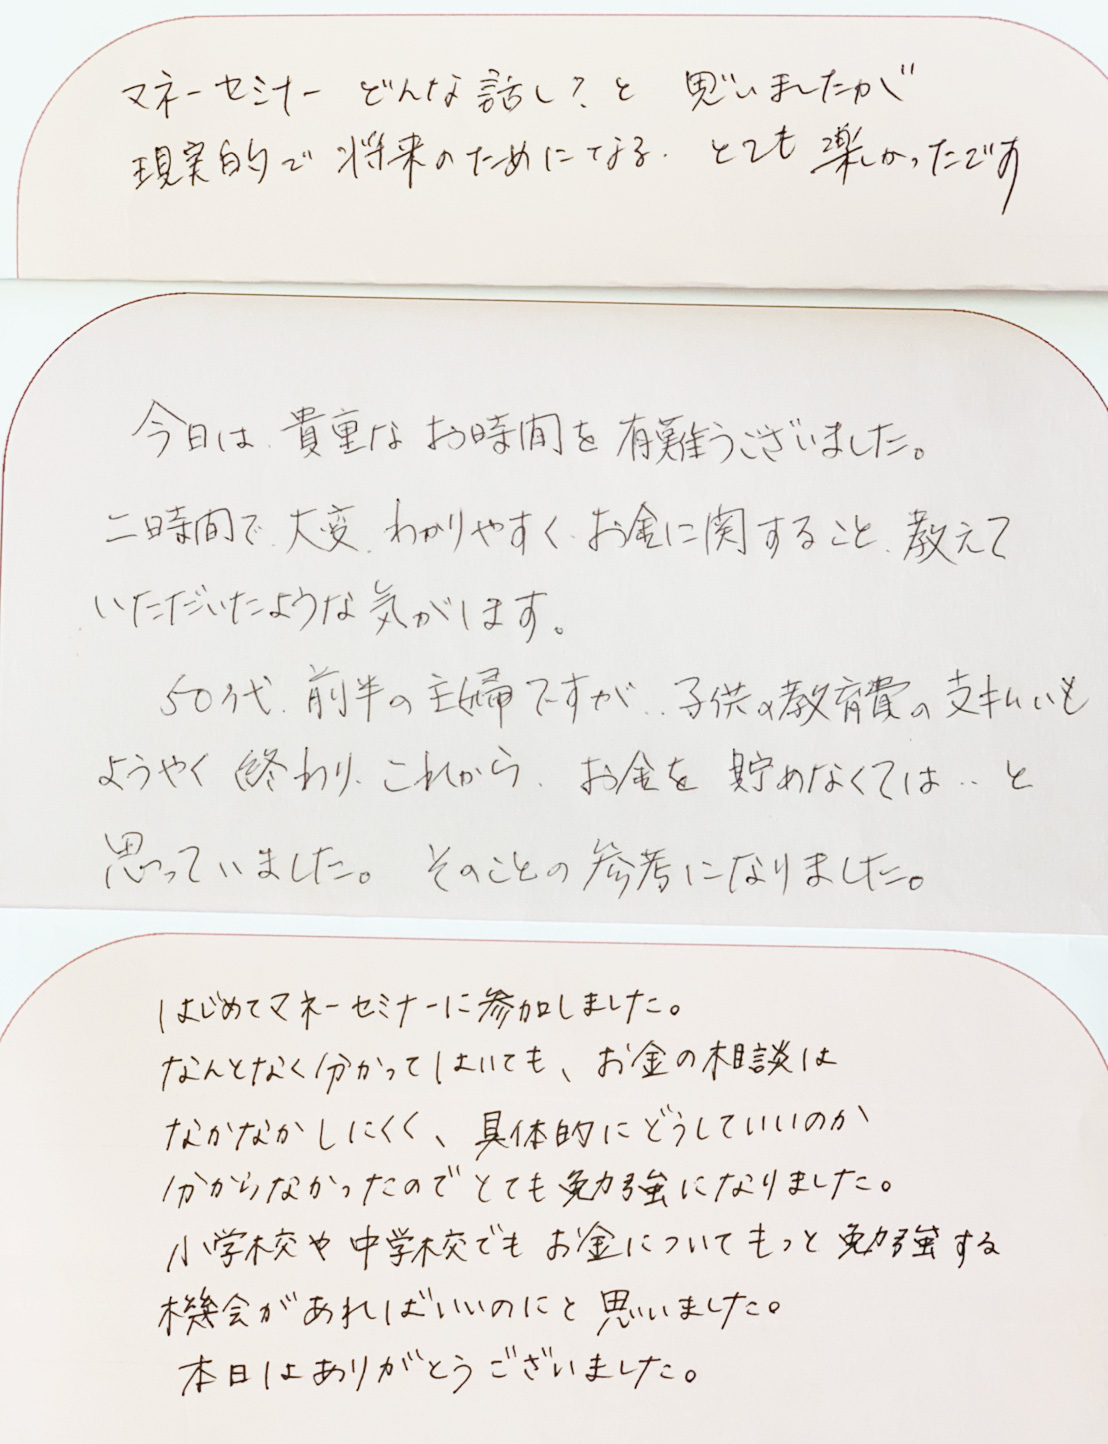 マネーセミナー どんな話し?と 思いましたが
現実的で将来のためになる. とても楽しかったです
今日は、貴重なお時間を有難うございました。
二時間で、大変、わかりやすく、お金に関すること、教えて
いただいたような気がします。
50代、前半の主婦ですが、、子供の教育費の支払いも
ようやく終わり、これから、お金を貯めなくては‥と
思っていました。そのことの参考になりました。
はじめてマネーセミナーに参加しました。
なんとなく分かってはいても、お金の相談は
なかなかしにくく、具体的にどうしていいのか
分からなかったのでとても勉強になりました。
小学校や中学校でもお金についてもっと勉強する
機会があればいいのにと思いました。
本日はありがとうございました。